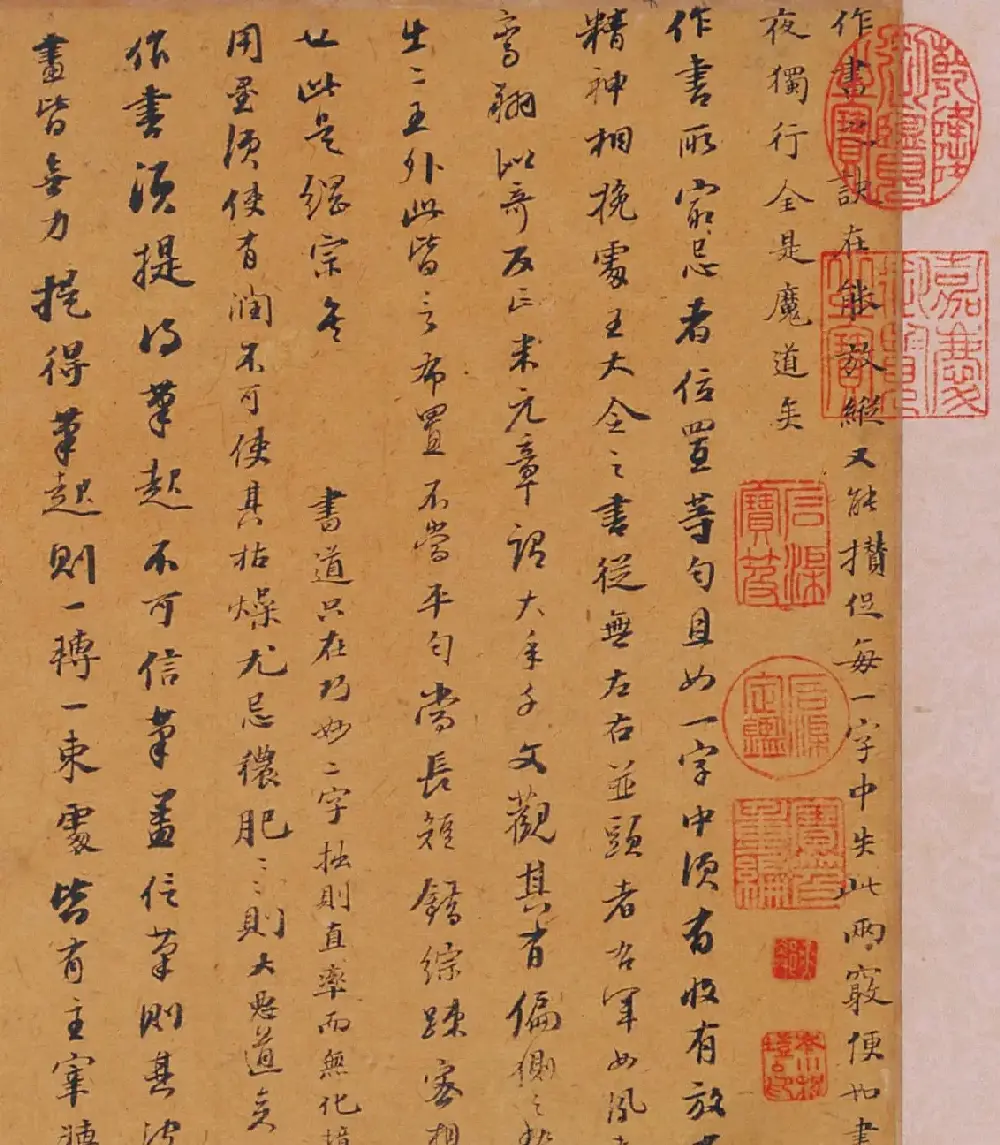 作書之訣在能放縱又能攢促每一字中失此兩竅便如晝
夜獨行全是魔道矣
作書所最忌者位置等勻且如一字中須有收有放有
精神相挽處王大令之書從無左右並頭者右軍如鳳
鸞翔似奇反正米元章謂大年千文觀其有偏側之勢
出二王外此皆言布置不當平勻當長短錯綜疎密相
也此是綱宗㐫 書道只在巧妙二字拙則直率而無化境
用墨須使有潤不可使其枯燥尤忌穠肥〻則大惡道矣
作書須提得筆起不可信筆蓋信筆則其波
畫皆無力提得筆起則一轉一束處皆有主宰轉
乾隆御覽之寶
嘉慶御覽之寶
石渠寶笈
石渠定鑑
寶笈重編